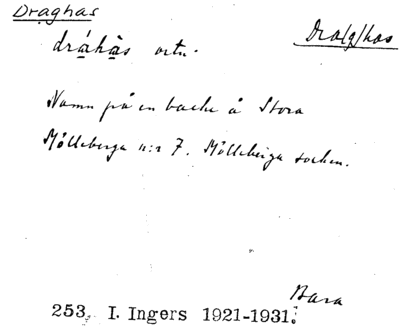 Draghas
Dra(g)has
dráhàs ortn.
Namn på en backe å Stora
Mölleberga n:r 7. Mölleberga socken.
Bara
253. I. Ingers 1921-1931.